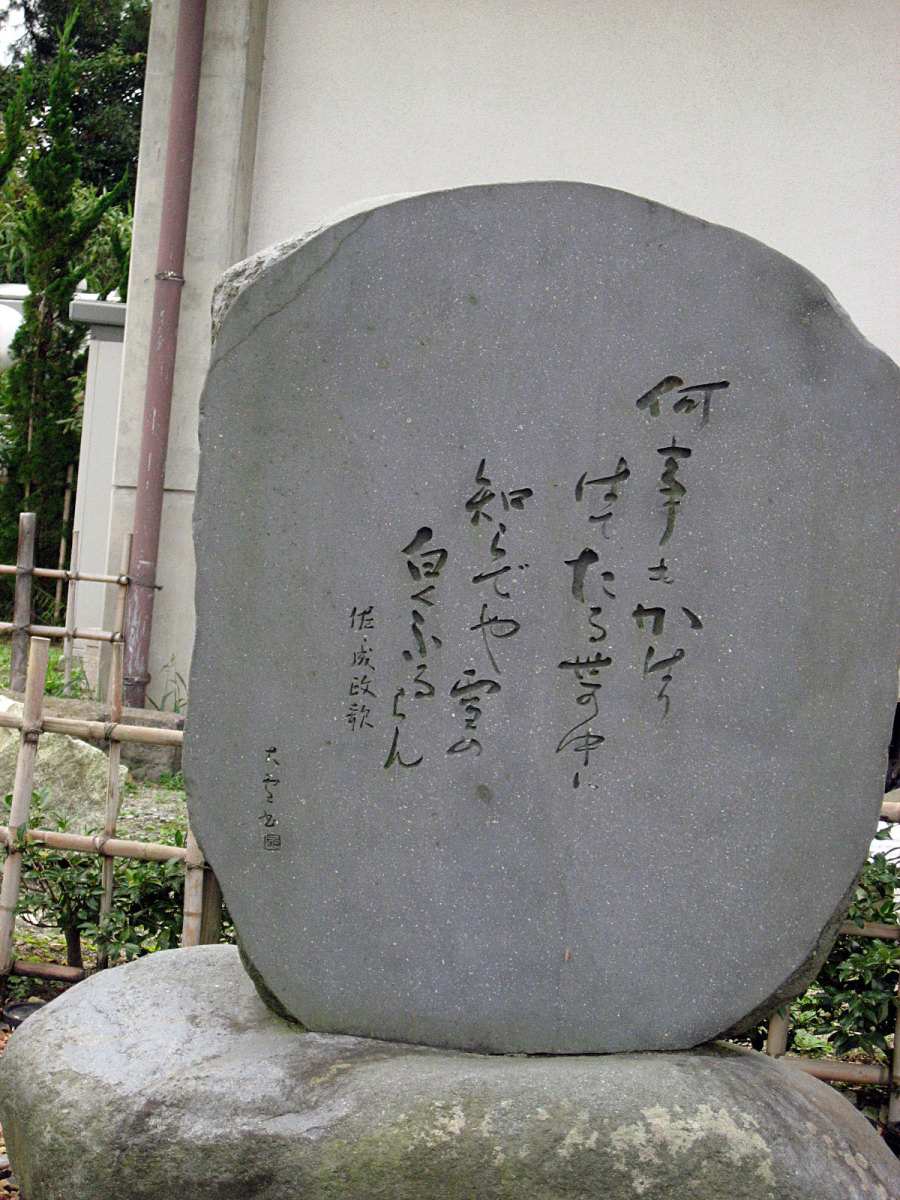 何事もかはり
はてたる世の中に
知らでや雪の
白くふるらん
佐々成政歌
大雲書